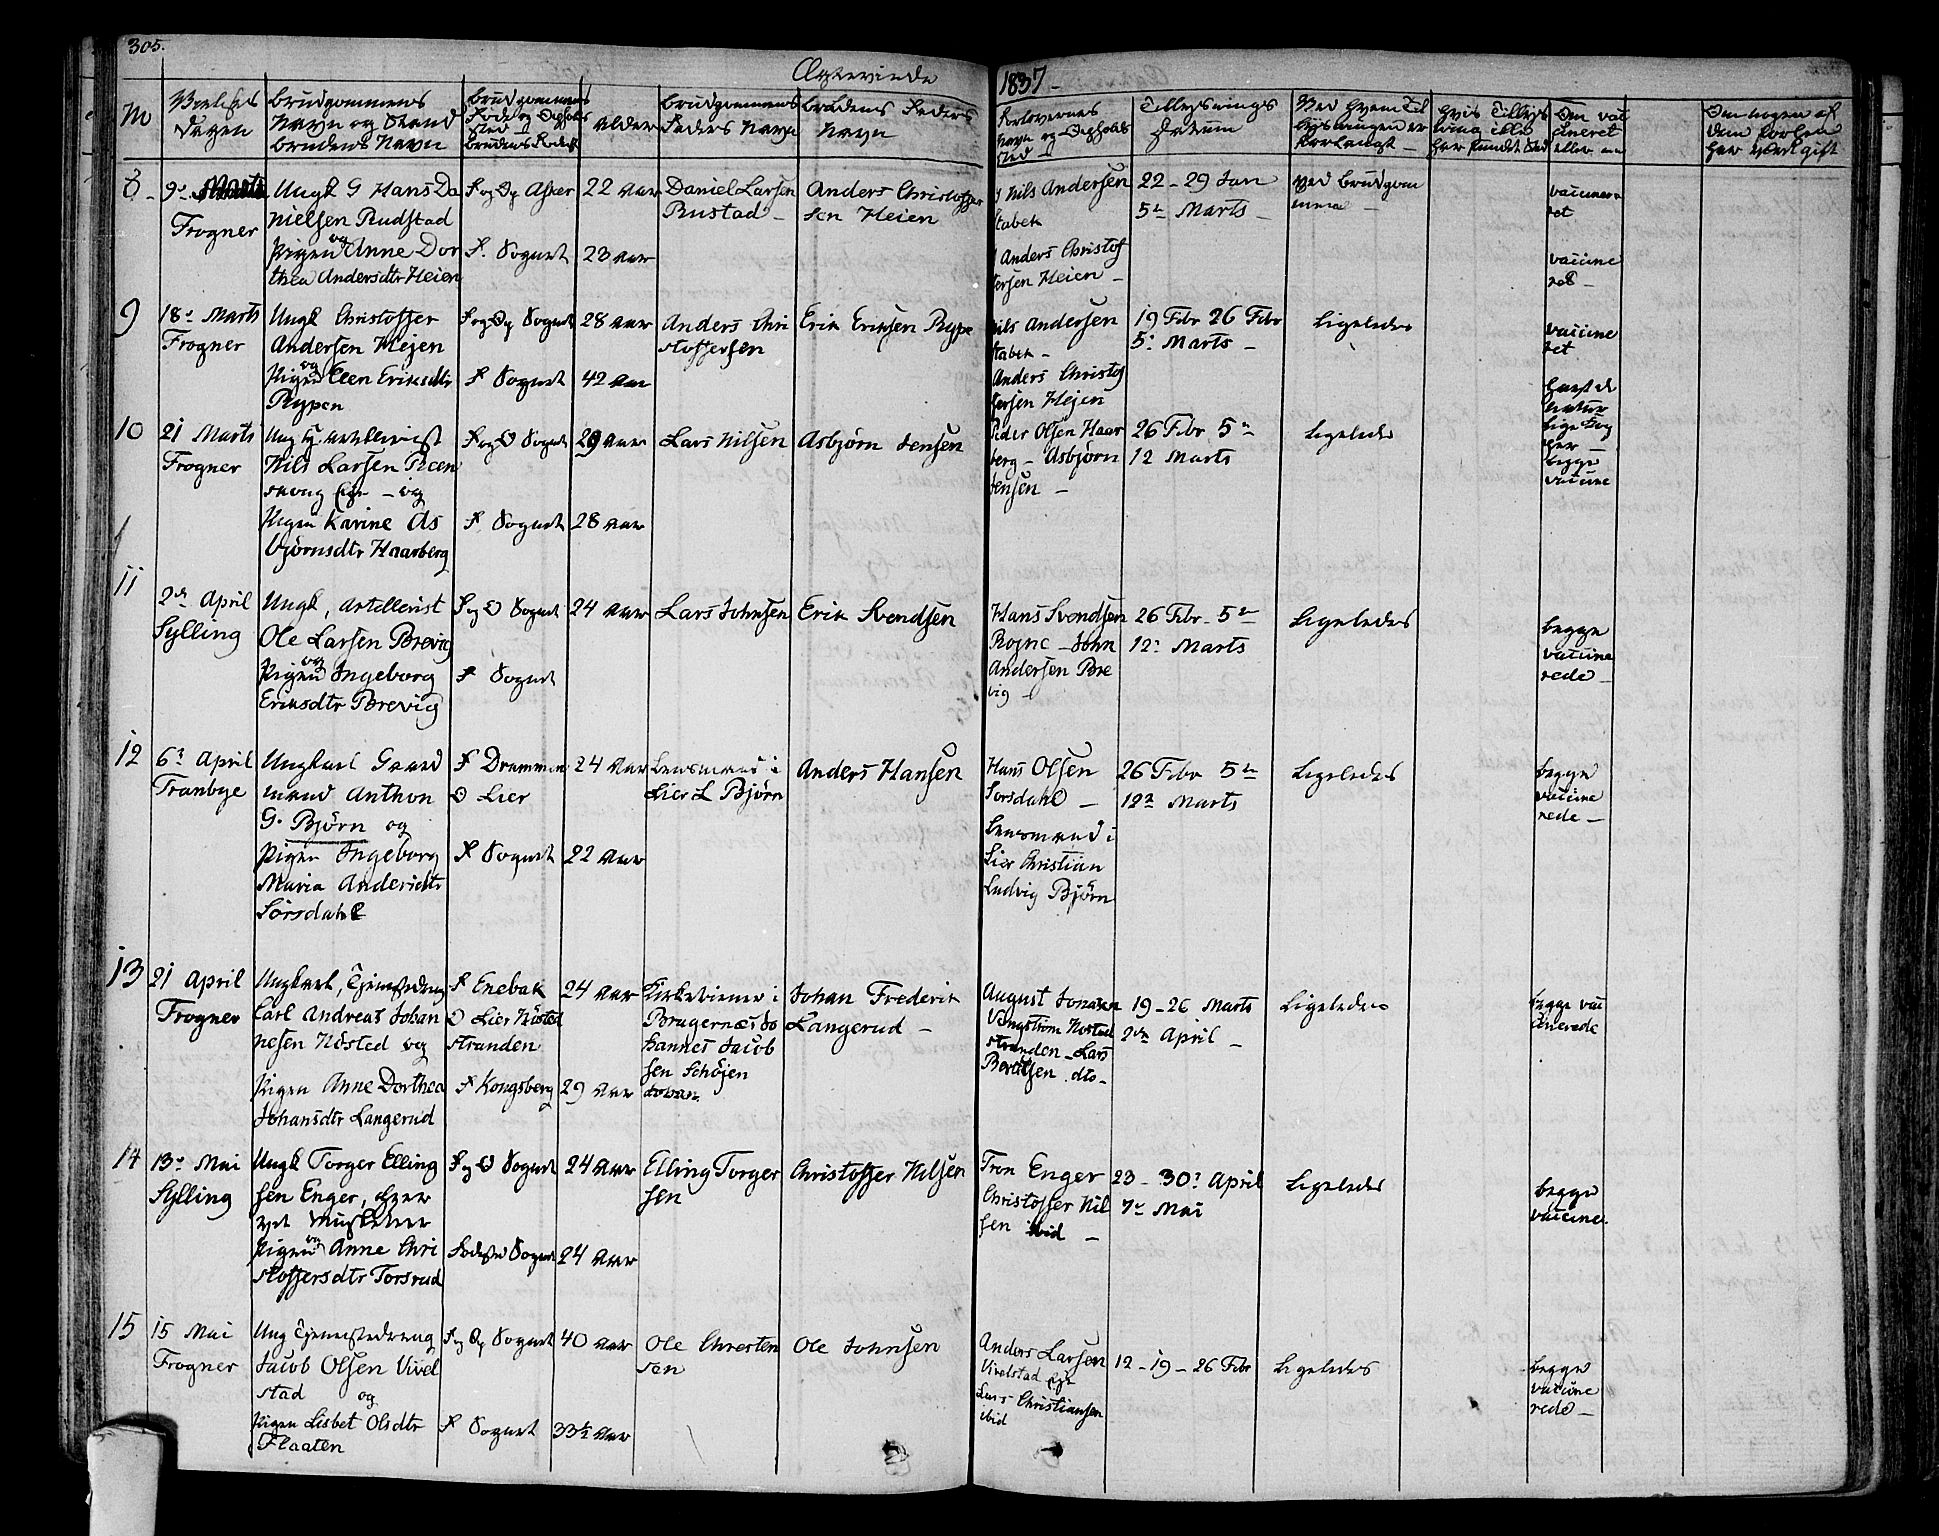 305.
Ægteviede
1837 -
No
Vielses
Dagen
Brudgommens
Navn og Stand
Brudens Navn
Brudgommens
Føde og Opholds
sted
Brudens Fødest
Alder
Brudgommens
Faders Navn
Brudens Faders
Navn
Forlovernes
Navn og Opholds
sted
Tillysnings
Datum
Ved hvem Til
lysningen er
forlangt -
Hvis Tillys
ning ikke
har fundet Sted
Om vac
cineret
eller ei
Om nogen af
dem forhen
har været gift
8 -
9de Marts
Frogner
Ungk G Hans Da
nielsen Rudstad
og
Pigen Anne Dor
thea Andersdtr Heien
F og Op Asker
F. Sognet
22 Aar
23 Aar
Daniel Larsen
Rustad -
Anders Christoffer
sen Heien
Nils Andersen
Stabek
Anders Christof
fersen Heien -
22 - 29 Jan
5te Marts -
Ved Brudgom
men -
vaccine
ret
vaccine
ret -
9
18de Marts
Frogner
Ungk Christoffer
Andersen Hejen
og
Pigen Eien Eriksdtr
Rypen
F og Op Sognet
F Sognet
28 Aar
42 Aar
Anders Chri
stoffersen
Erik Eriksen Rype
Nils Andersen
Stabek -
Anders Christof
fersen Hejen
19 Febr 26 Febr
5te Marts -
Ligeledes
vaccine
ret
havt de
natur
lige Kop
per -
10
21 Marts
Frogner
Ung K. artillerist
Nils Larsen Reen
skoug Eje - og
Pigen Karine As
bjørnsdtr Haarberg
F og O Sognet
F. Sognet
29 Aar
28 Aar
Lars Nilsen
Asbjørn Jensen
Peder Olsen Haar
berg - Asbjørn
Jensen -
26 Febr 5te
12 Marts
Ligeledes
begge
vaccine
11
2den April
Sylling
Ungk, Artillerist
Ole Larsen Brevig
og
Pigen Ingeborg
Eriksdtr Brevig
F og O Sognet
F Sognet
24 Aar
Lars Johnsen
Erik Svendsen
Hans Svendsen
Rogne - John
Andersen Bre
vig -
26 Febr - 5te
12te Marts
Ligeledes
begge
vaccine
rede -
12
6te April
Tranbye
Ungkarl Gaard
mand Anthon
G. Bjørn og
Pigen Ingeborg
Maria Andersdtr
Sørsdahl
F Drammen
O Lier
F Sognet
24 Aar
22 Aar
Lensmand i
Lier L Bjørn
Anders Hansen
Hans Olsen
Sorsdahl -
Lensmand i
Lier Christian
Ludvig Bjørn
26 Febr 5te
12te Marts
Ligeledes
begge
vaccine
rede -
13
21 April
Frogner
Ungkarl, Tjenestedreng
Carl Andreas Johan
nesen Nøsted og
Pigen Anne Dorthea
Johansdtr Langerud
F Enebak
O Lier Nøsted
stranden
F Kongsberg
24 Aar
29 Aar
Kirketiener i
Bragernæs Jo
hannes Jacob
sen Schøjen
Johan Frederik
Langerud -
August Jonasen
Vengstrøm Nøsted
stranden - Lars
Berntsen dto -
19 - 26 Marts
2den April -
Ligeledes
begge vac
cinerede
14
13de Mai
Sylling
Ungk Torger Elling
sen Enger,
og
Pigen Anne Chri
stoffersdtr Torsrud
F og O Sognet
Fødested Sognet
24 Aar
24 Aar
Elling Torger
sen
Christoffer Nilsen
Tron Enger
Christoffer Nil
sen ibid -
23 - 30te April
7de Mai
Ligeledes
begge
vaccine.
15
15 Mai
Frogner
Ung Tjenestedreng
Jacob Olsen Vivel
stad og
Pigen Lisbet Olsdtr
Flaaten
F og Op Sognet
F Sognet
40 Aar
33½ Aar
Ole Chresten
sen
Ole Johnsen
Anders Larsen
Vivelstad Eje
Lars Christiansen
ibid
12 - 19 - 26 Febr
Ligeledes
begge
vaccine
rede -